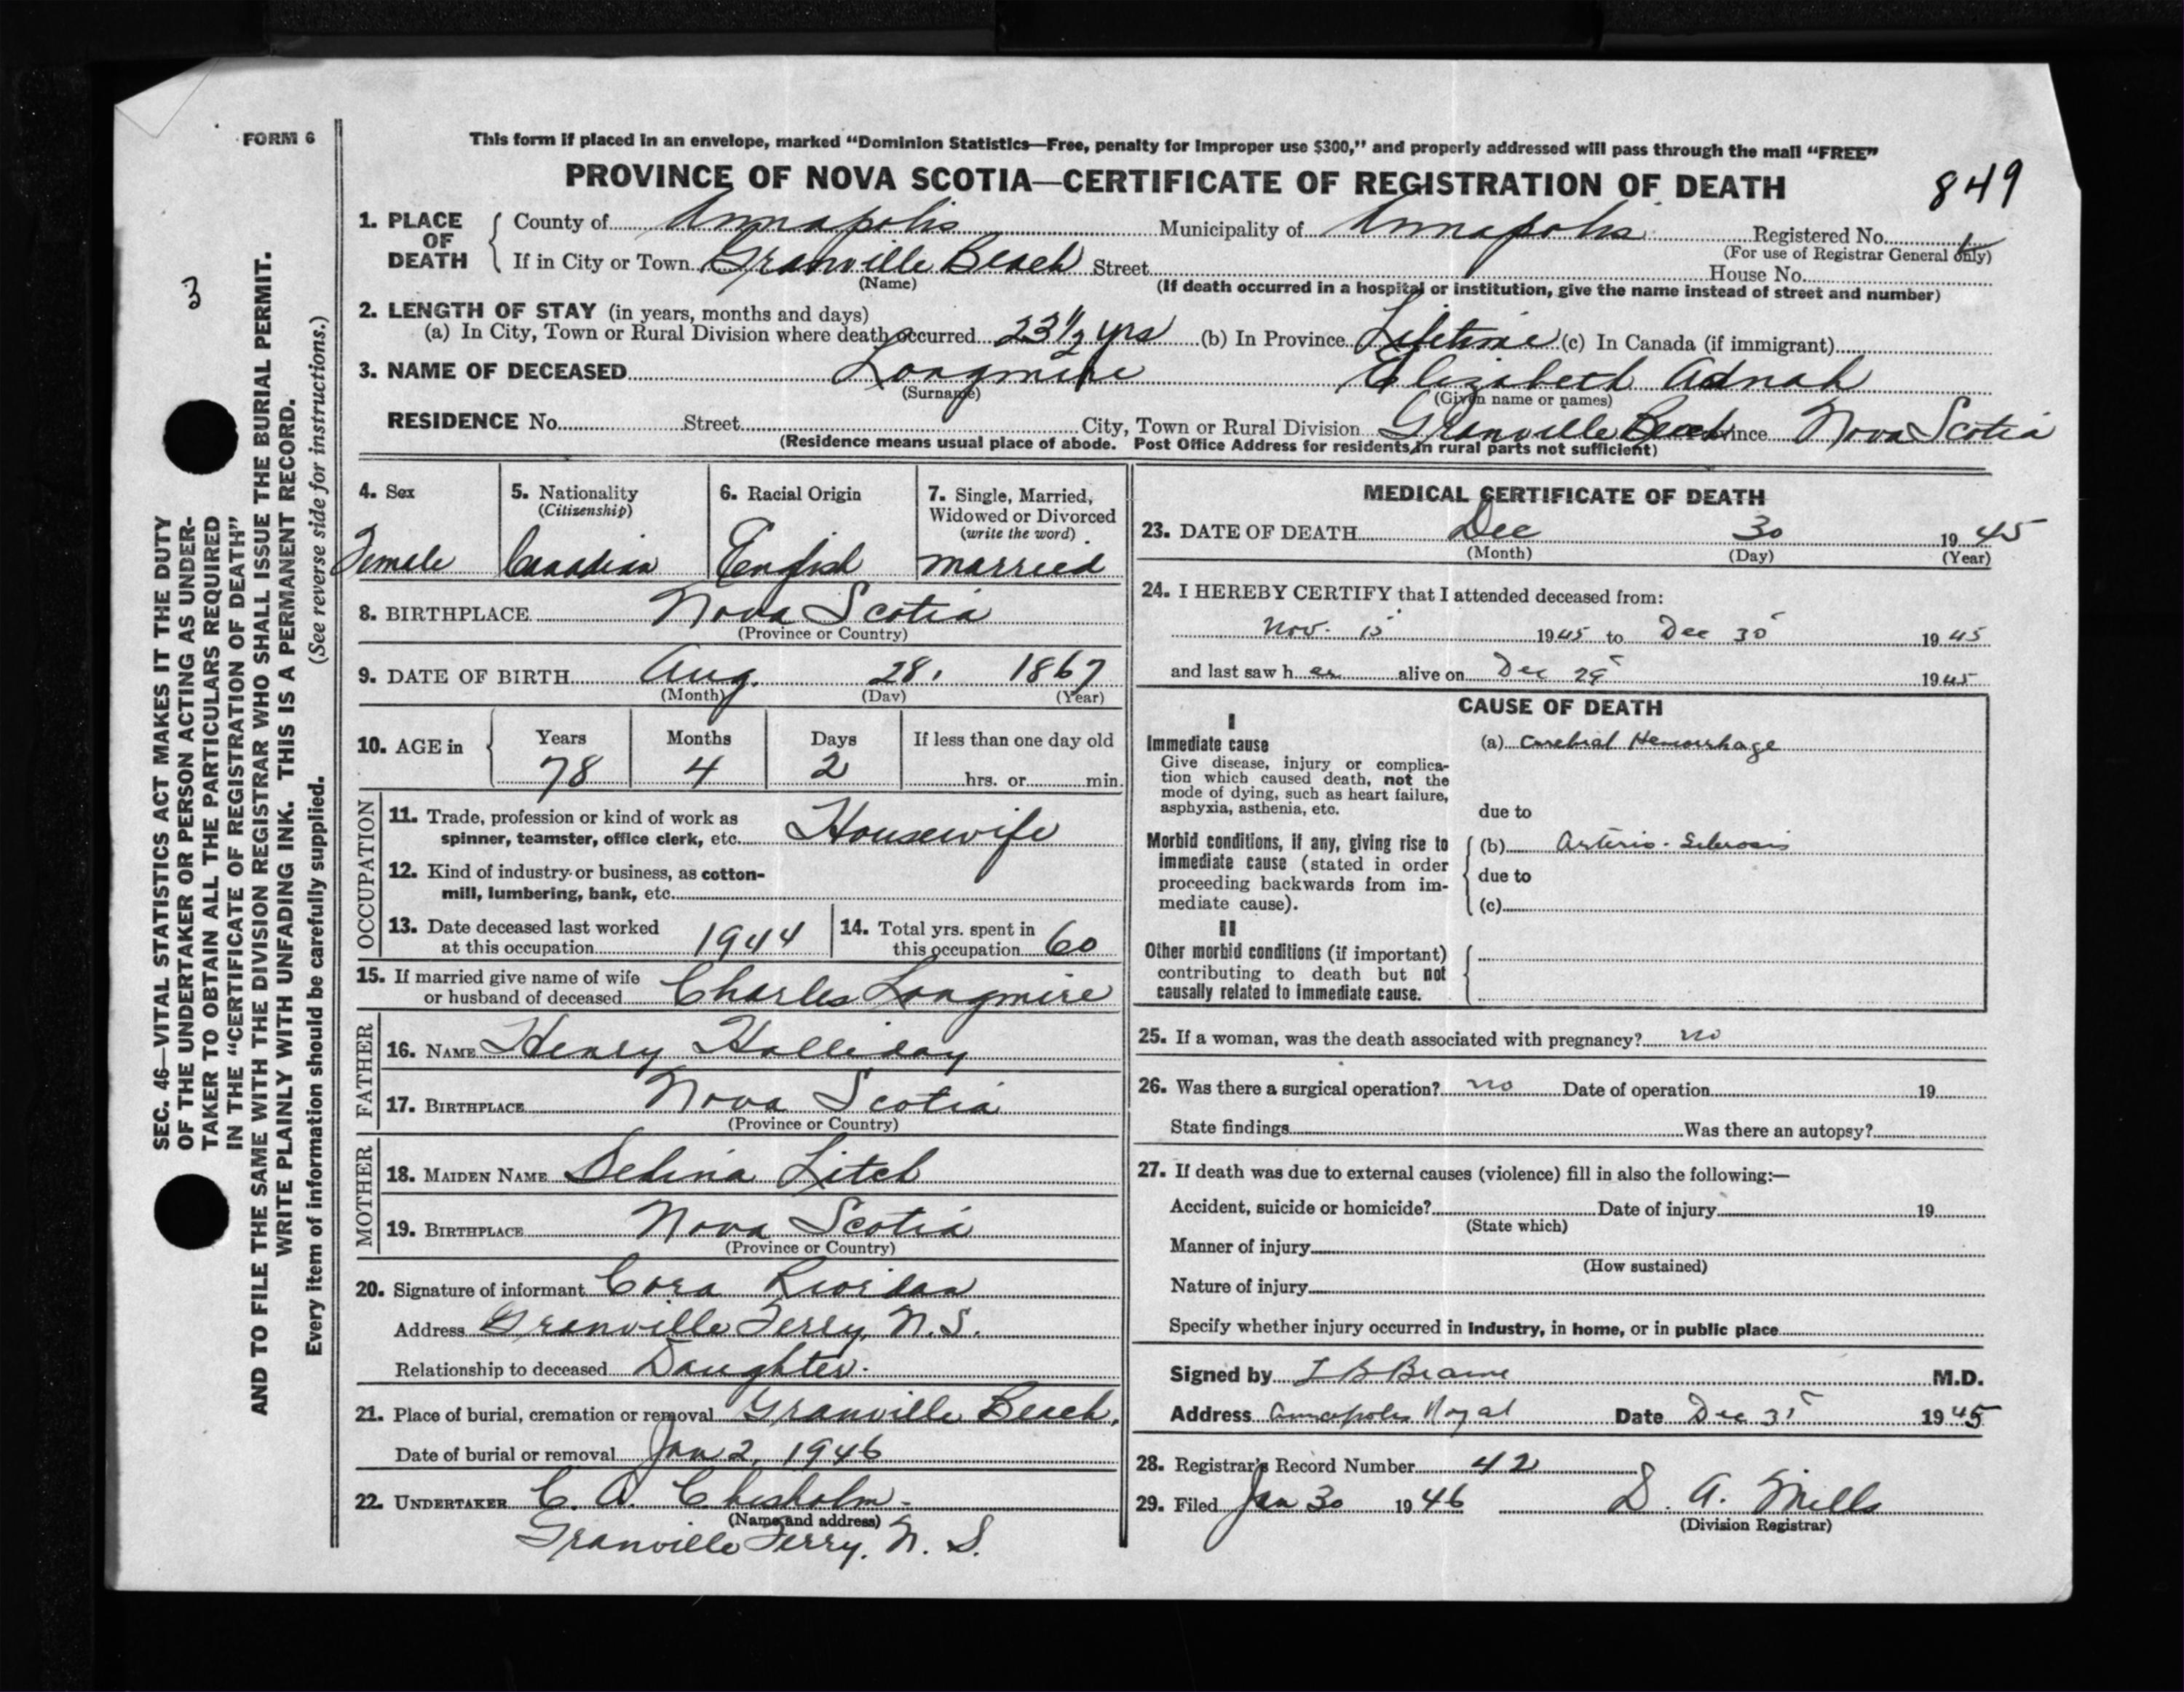 FORM 6
This form if placed in an envelope, marked "Dominion Statistics—Free, penalty for improper use $300," and properly addressed will pass through the mail "FREE"
PROVINCE OF NOVA SCOTIA—CERTIFICATE OF REGISTRATION OF DEATH
849
3
SEC. 46—VITAL STATISTICS ACT MAKES IT THE DUTY
OF THE UNDERTAKER OR PERSON ACTING AS UNDER-
TAKER TO OBTAIN ALL THE PARTICULARS REQUIRED
IN THE "CERTIFICATE OF REGISTRATION OF DEATH"
AND TO FILE THE SAME WITH THE DIVISION REGISTRAR WHO SHALL ISSUE THE BURIAL PERMIT.
WRITE PLAINLY WITH UNFADING INK. THIS IS A PERMANENT RECORD.
Every item of information should be carefully supplied. (See reverse side for instructions.)
1. PLACE OF DEATH
County of Annapolis Municipality of Annapolis Registered No.
(For use of Registrar General only)
If in City or Town Granville Beach Street House No.
(Name) (If death occurred in a hospital or institution, give the name instead of street and number)
2. LENGTH OF STAY (in years, months and days)
(a) In City, Town or Rural Division where death occurred 23 1/2 yrs (b) In Province Lifetime (c) In Canada (if immigrant)
3. NAME OF DECEASED Longmire Elizabeth Adnah
(Surname) (Given name or names)
RESIDENCE No. Street City, Town or Rural Division Granville Beach Province Nova Scotia
(Residence means usual place of abode. Post Office Address for residents in rural parts not sufficient)
4. Sex
Female
5. Nationality
(Citizenship)
Canadian
6. Racial Origin
English
7. Single, Married,
Widowed or Divorced
(write the word)
married
8. BIRTHPLACE Nova Scotia
(Province or Country)
9. DATE OF BIRTH Aug. 28, 1867
(Month) (Day) (Year)
10. AGE in Years Months Days If less than one day old
78 4 2 hrs. or min.
OCCUPATION
11. Trade, profession or kind of work as
spinner, teamster, office clerk, etc. Housewife
12. Kind of industry or business, as cotton-
mill, lumbering, bank, etc.
13. Date deceased last worked
at this occupation 1944
14. Total yrs. spent in
this occupation 60
15. If married give name of wife
or husband of deceased Charles Longmire
FATHER
16. NAME Henry Halliday
17. BIRTHPLACE Nova Scotia
(Province or Country)
MOTHER
18. MAIDEN NAME Selina Litch
19. BIRTHPLACE Nova Scotia
(Province or Country)
20. Signature of informant Cora Riordan
Address Granville Ferry, N.S.
Relationship to deceased Daughter.
21. Place of burial, cremation or removal Granville Beach,
Date of burial or removal Jan 2, 1946
22. UNDERTAKER C. A. Chisholm -
(Name and address)
Granville Ferry, N. S.
MEDICAL CERTIFICATE OF DEATH
23. DATE OF DEATH Dec 30 1945
(Month) (Day) (Year)
24. I HEREBY CERTIFY that I attended deceased from:
Nov. 15 1945 to Dec 30 1945
and last saw her alive on Dec 29 1945
CAUSE OF DEATH
I
Immediate cause
Give disease, injury or complica-
tion which caused death, not the
mode of dying, such as heart failure,
asphyxia, asthenia, etc.
(a) Cerebral Hemorrhage
due to
Morbid conditions, if any, giving rise to
immediate cause (stated in order
proceeding backwards from im-
mediate cause).
(b) Arterio-Sclerosis
due to
(c)
II
Other morbid conditions (if important)
contributing to death but not
causally related to immediate cause.
25. If a woman, was the death associated with pregnancy? no
26. Was there a surgical operation? no Date of operation 19
State findings Was there an autopsy?
27. If death was due to external causes (violence) fill in also the following:—
Accident, suicide or homicide? Date of injury 19
(State which)
Manner of injury
(How sustained)
Nature of injury
Specify whether injury occurred in industry, in home, or in public place
Signed by M.D.
Address Annapolis Royal Date Dec 31 1945
28. Registrar's Record Number 42
29. Filed Jan 30 1946 D. A. Mills
(Division Registrar)